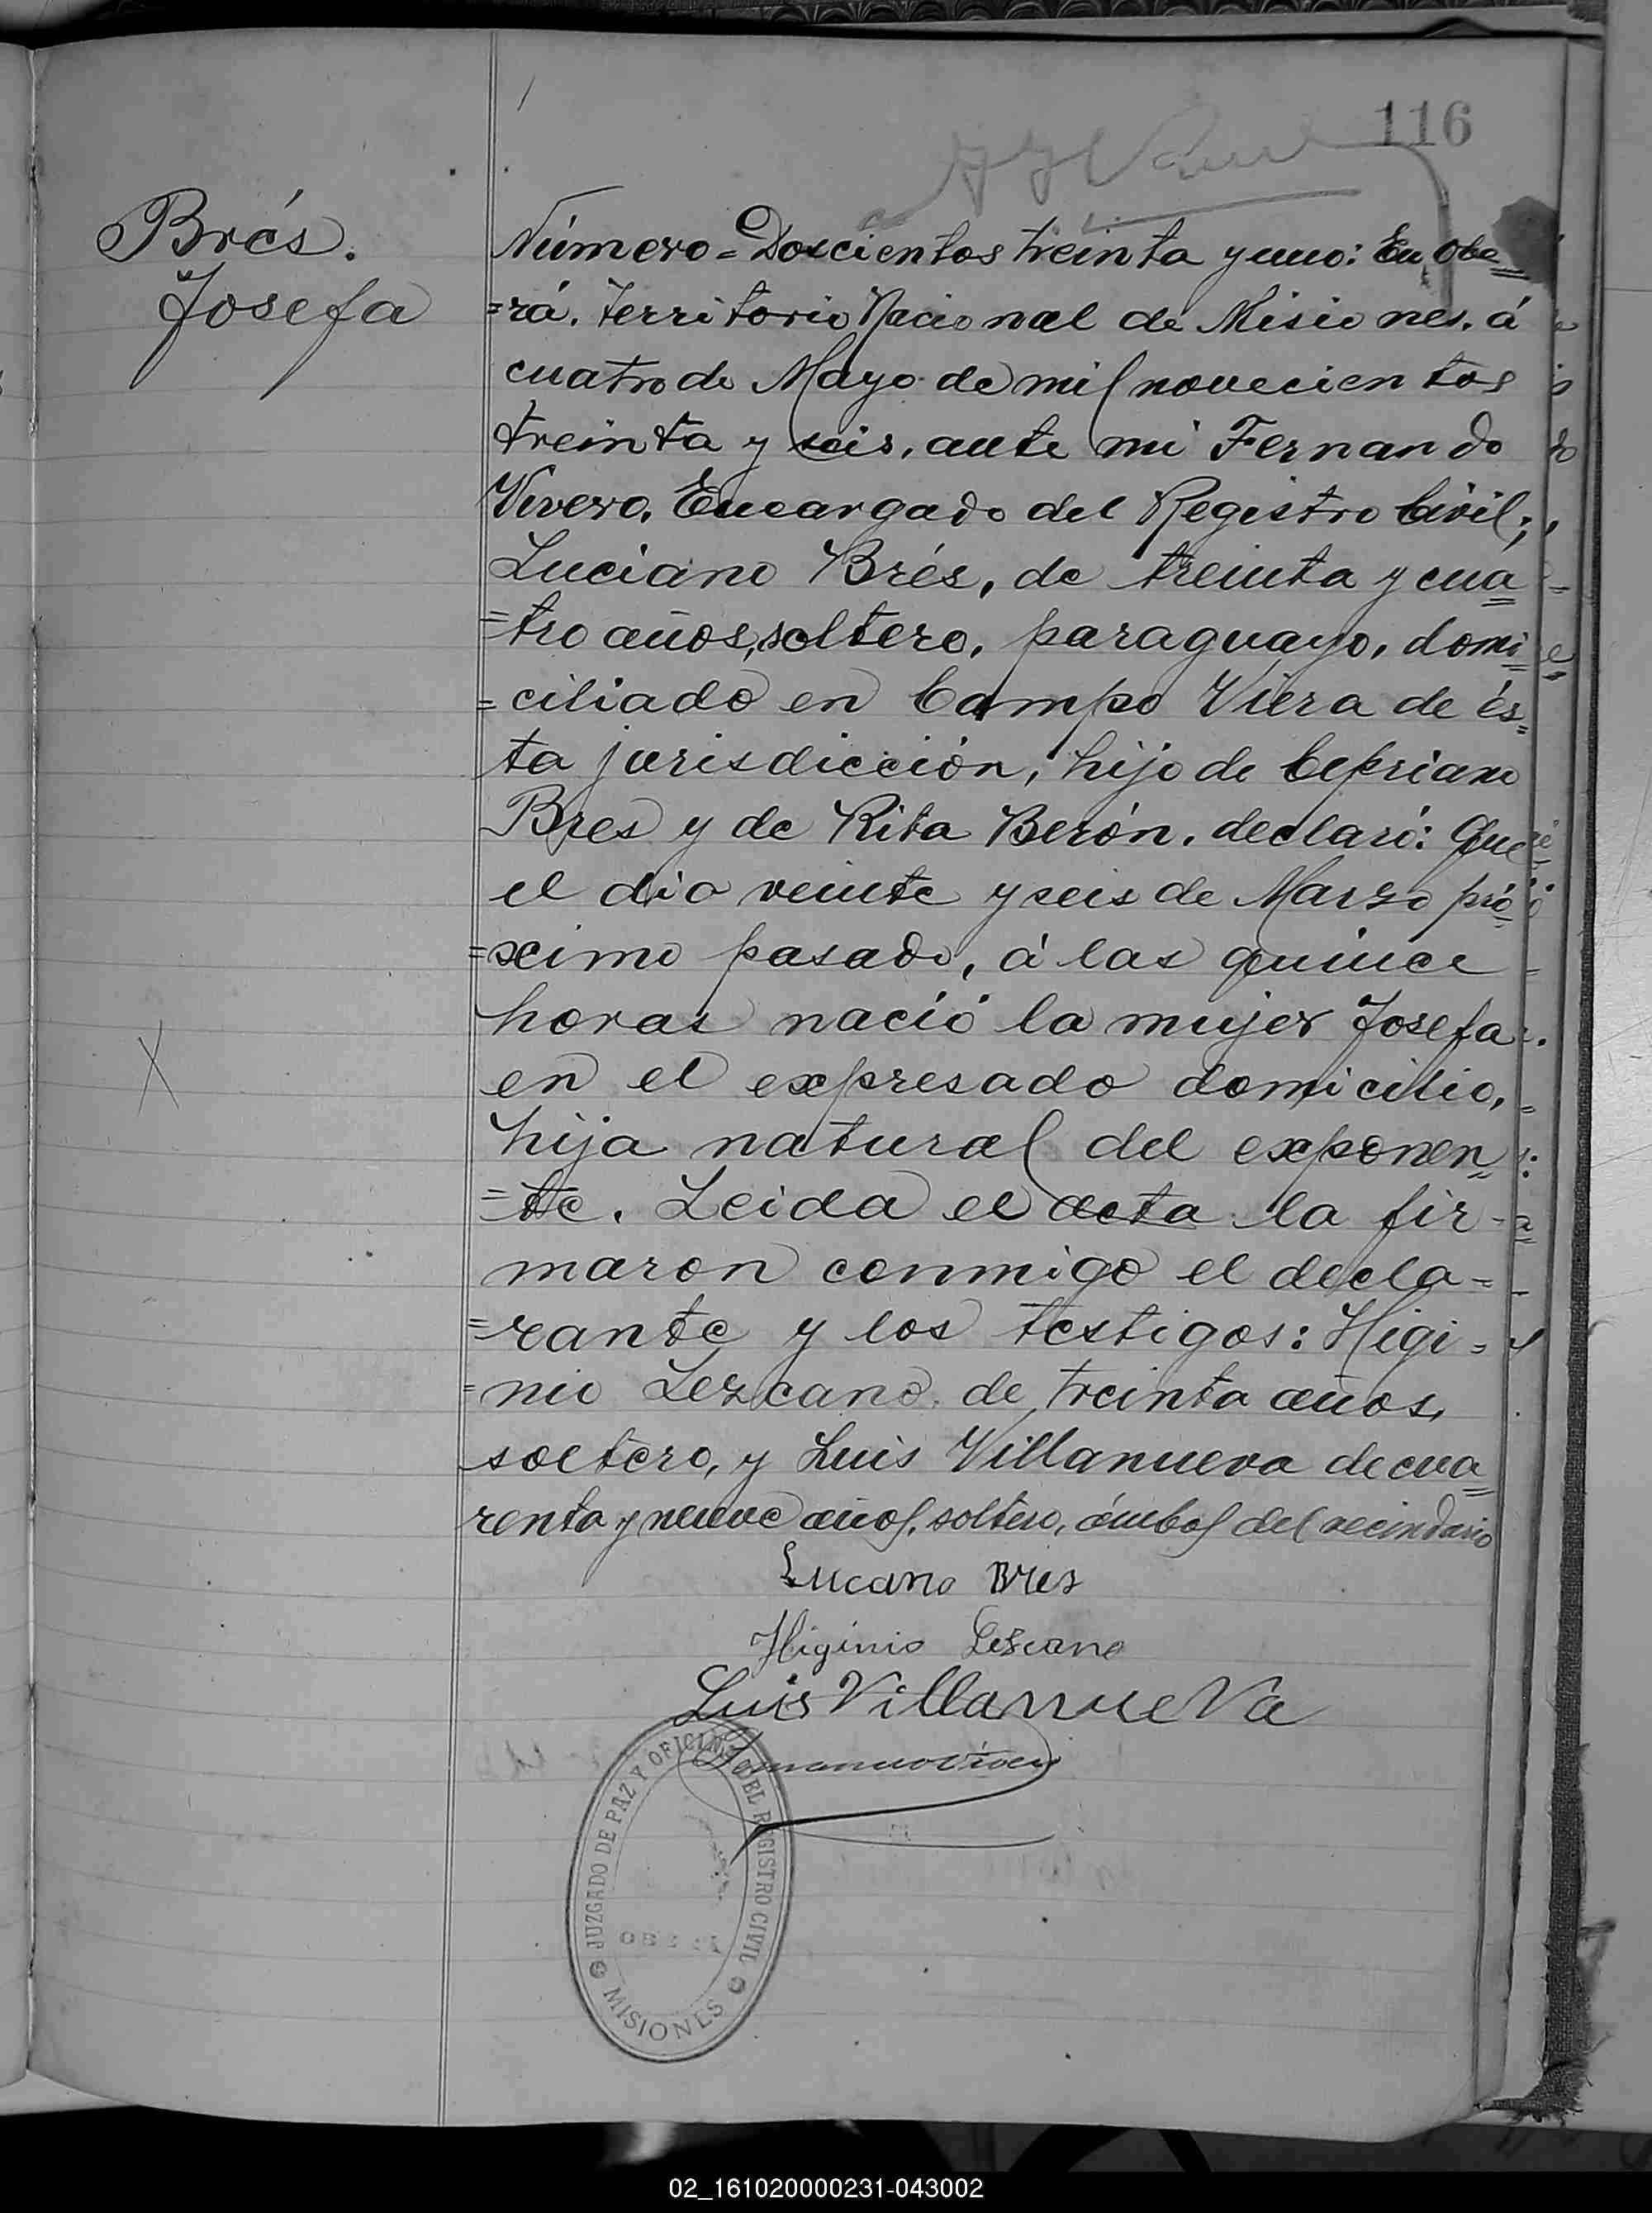 116
Brés.
Josefa
Número = Doscientos treinta y uno: En Obe=
=rá. Territorio Nacional de Misiones, á
cuatro de Mayo de mil novecientos
treinta y seis, ante mi Fernando
Vivero, Encargado del Registro Civil;
Luciano Brés, de treinta y cua=
=tro años, soltero, paraguayo, domi=
=ciliado en Campo Viera de és=
ta jurisdicción, hijo de Cipriano
Bres y de Rita Berón, declaró: Que
el dia veinte y seis de Marzo pró=
=ximo pasado, á las quince
horas nació la mujer Josefa
en el expresado domicilio,
hija natural del exponen=
=te. Leida el acta la fir-
maron conmigo el decla=
=rante y los testigos: Higi=
=nio Lezcano, de treinta años,
soltero, y Luis Villanueva de cua=
renta y nueve años, soltero, ámbos del vecindario
Lucano Bres
Higinio Lescano
Luis Villanueva
JUZGADO DE PAZ Y OFICINA DEL REGISTRO CIVIL
MISIONES
02_161020000231-043002